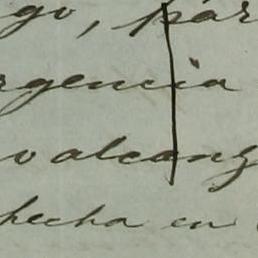 go, par
rgencia
o alcanz
hecha en